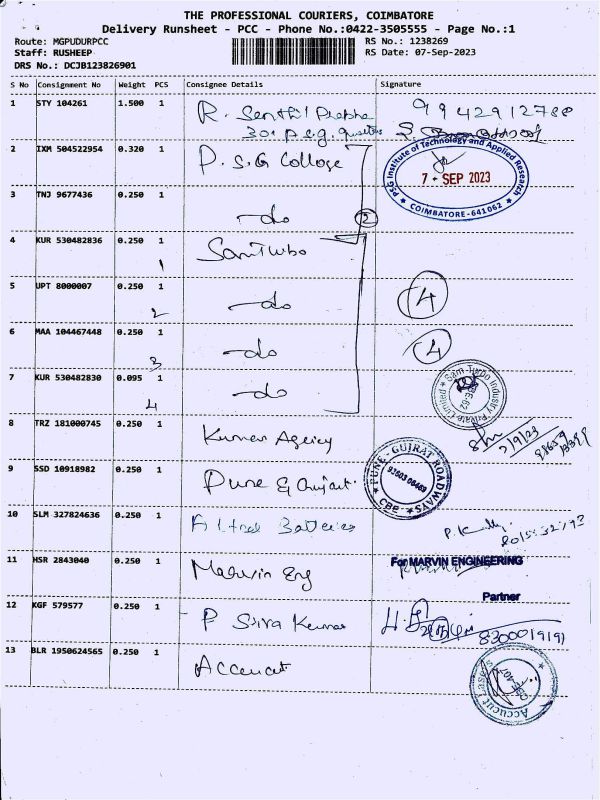 THE PROFESSIONAL COURIERS, COIMBATORE
Delivery Runsheet - PCC - Phone No.:0422-3505555 - Page No.:1
Route: MGPUDURPCC
RS No.: 1238269
Staff: RUSHEEP
RS Date: 07-Sep-2023
DRS No.: DCJB123826901
S No Consignment No Weight PCS Consignee Details Signature
1 STY 104261 1.500 1 R. Senthil Prabha 9942912788
301 P.S.G. Quarters
2 IXM 504522954 0.320 1 P.S.G College
PSG Institute of Technology and Applied Research
7 - SEP 2023
★ COIMBATORE-641062 ★
3 TNJ 9677436 0.250 1
-do 2
4 KUR 530482836 0.250 1 Sam Turbo
1
5 UPT 8000007 0.250 1
-do 4
2
6 MAA 104467448 0.250 1
-do 4
3
7 KUR 530482830 0.095 1
-do
4
Sam-Turbo Industry Private Limited ★
CBE-62
8 TRZ 181000745 0.250 1
Kumar Agency
7/9/23
9 SSD 10918982 0.250 1
Pune & Gujarat
PUNE - GUJRAT ROADWAYS
★ CBE ★
10 SLM 327824636 0.250 1
Batteries
11 HSR 2843040 0.250 1
Marvin Eng
For MARVIN ENGINEERING
Partner
12 KGF 579577 0.250 1
P Siva Kumar
8300019191
13 BLR 1950624565 0.250 1
Accucut
Accucut Lasers